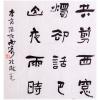 共剪西窗
燭却話巴
山夜雨時